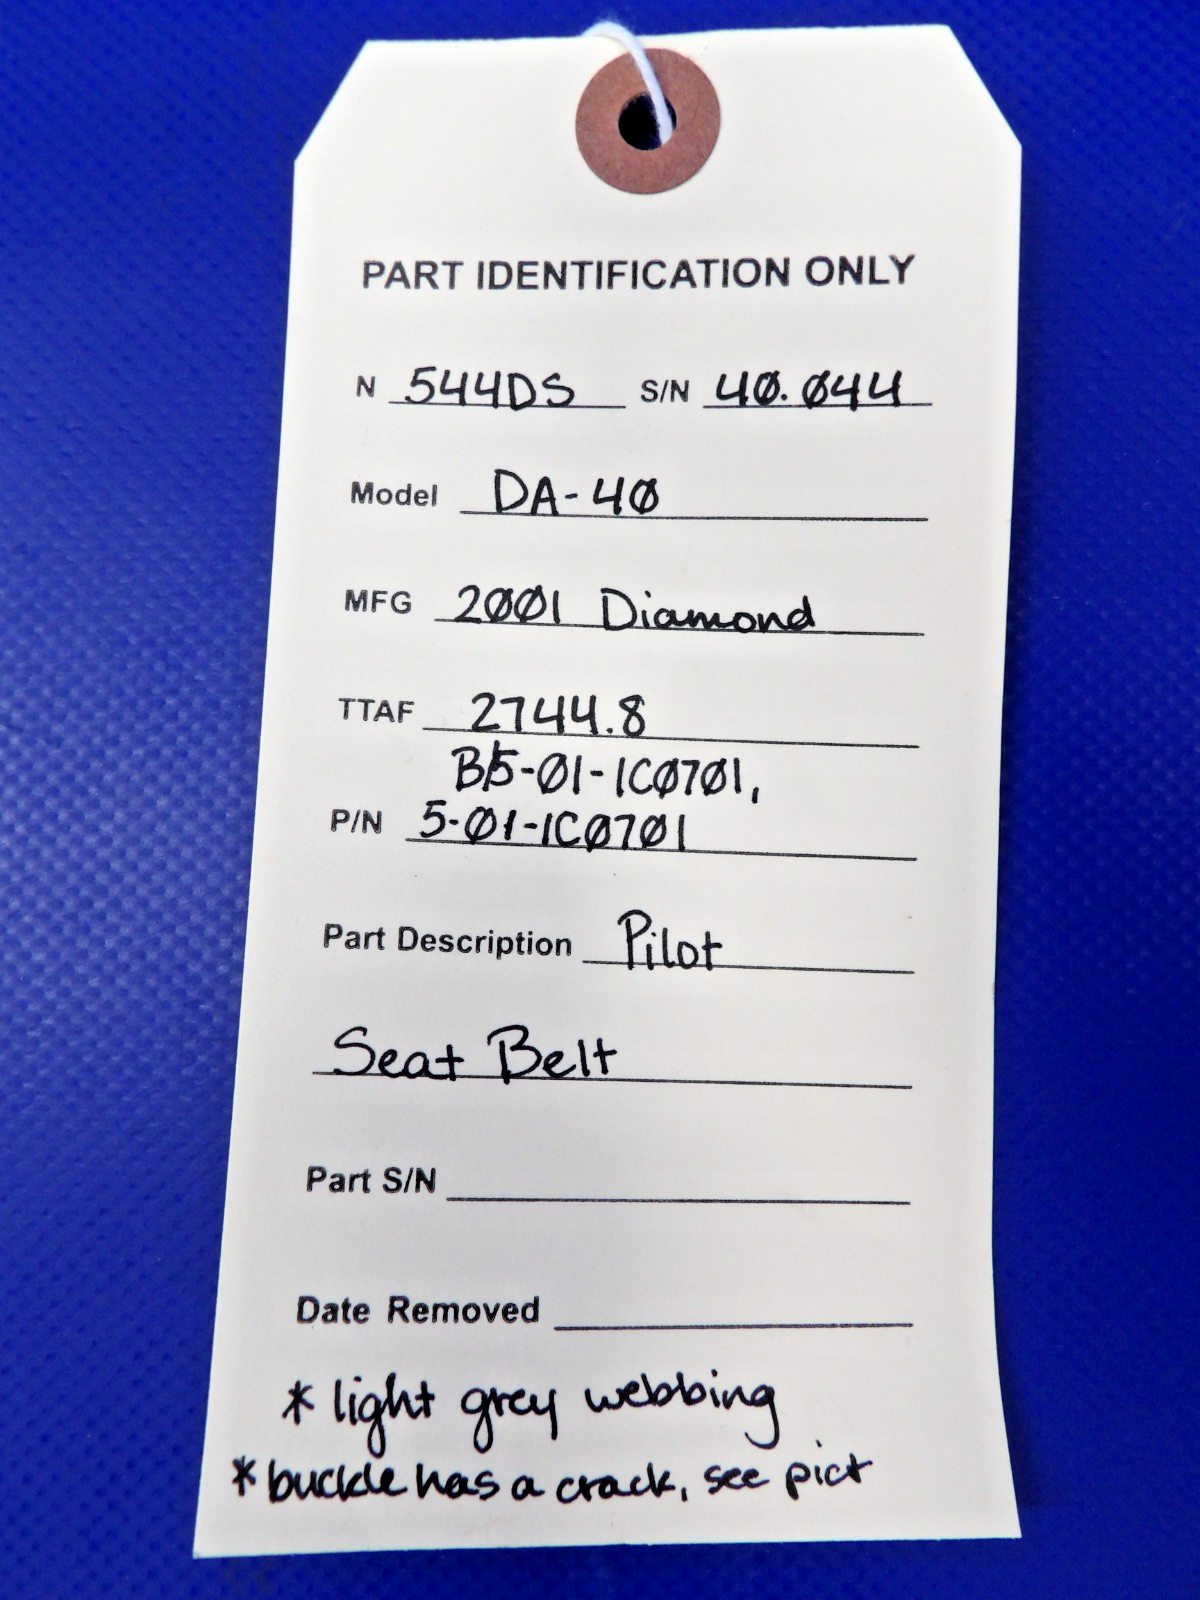 PART IDENTIFICATION ONLY
N 544DS S/N 40.044
Model DA-40
MFG 2001 Diamond
TTAF 2744.8
B5-01-1C0701,
P/N 5-01-1C0701
Part Description Pilot
Seat Belt
Part S/N
Date Removed
* light grey webbing
* buckle has a crack, see pict